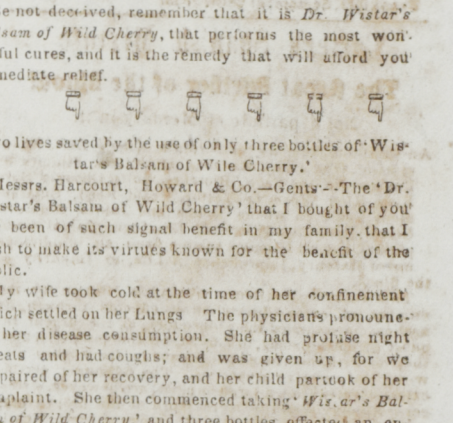 e not deceived, remember that it is Dr. Wistar's
sam of Wild Cherry, that performs the most won-
ful cures, and it is the remedy that will afford you
mediate relief.
o lives saved by the use of only three bottles of 'Wis-
tar's Balsam of Wile Cherry.'
Messrs. Harcourt, Howard & Co.—Gents--The 'Dr.
star's Balsam of Wild Cherry' that I bought of you
been of such signal benefit in my family. that I
sh to make its virtues known for the benefit of the
lic.
My wife took cold at the time of her confinement
ich settled on her Lungs The physicians pronounc-
her disease consumption. She had profuse night
eats and had coughs; and was given up, for we
paired of her recovery, and her child partook of her
mplaint. She then commenced taking 'Wis.ar's Bal-
of Wild Cherry' and three bottles effected an